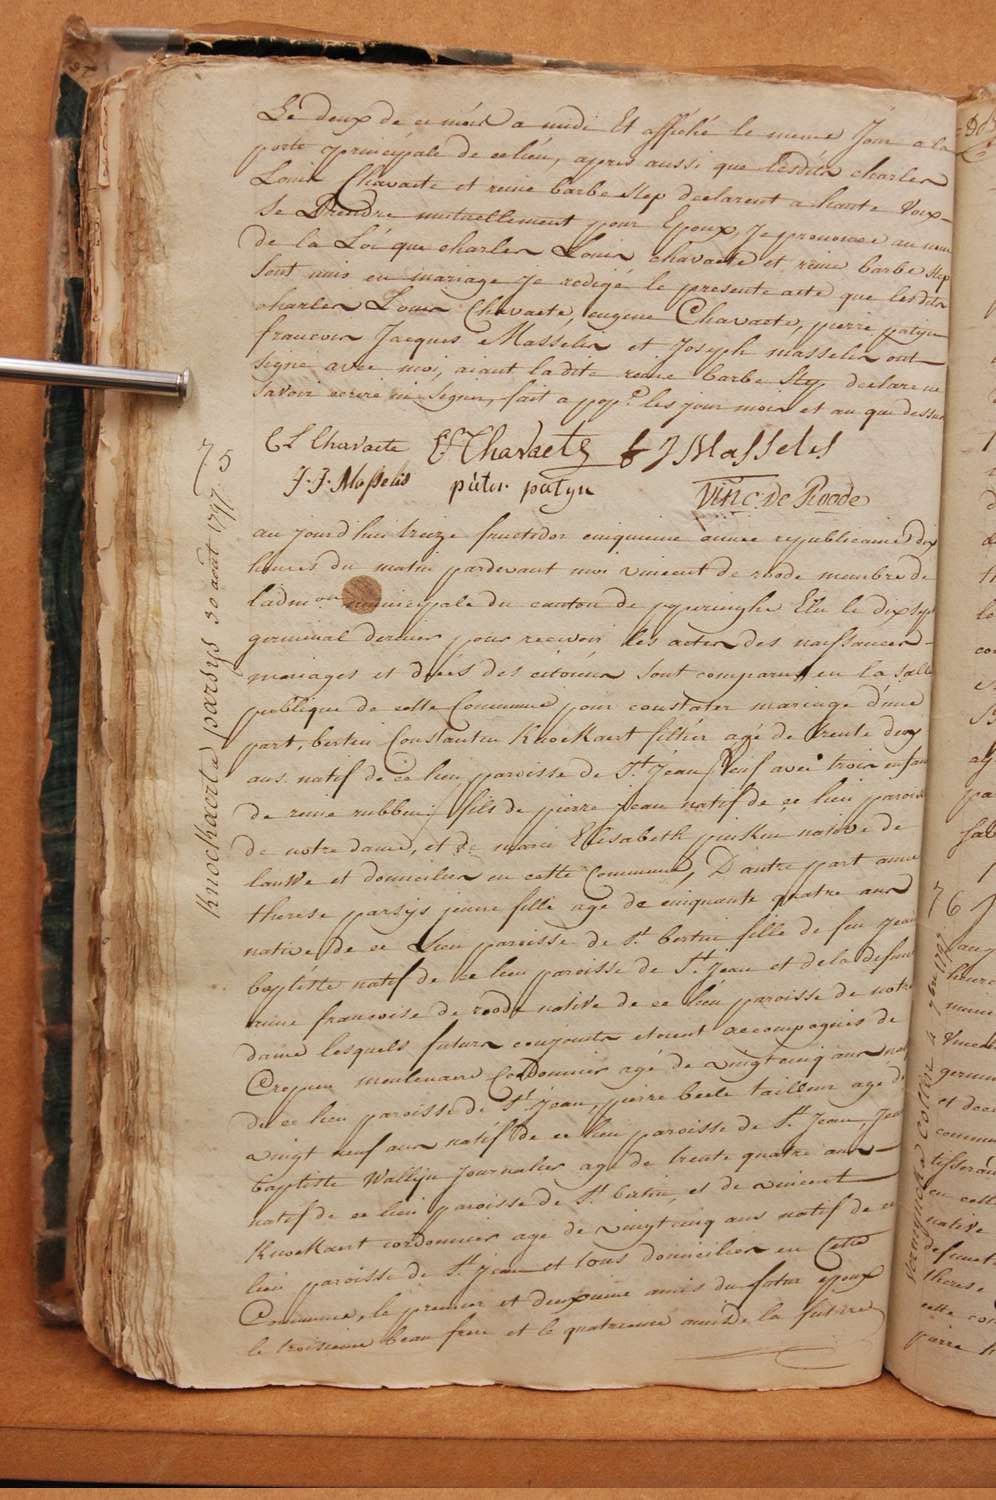 Le deux de ce mois a midi Et affiché le meme Jour a la
porte principale de ce lieu, apres aussi que lesdits charles
Louis Chavaete et reine barbe Step declarent a haute Voix
Se Prendre mutuellement pour Epoux, Je prononce au nom
de la Loi que charles Louis chavaete et reine barbe Step
Sont unis en mariage Je redigé le presente acte que lesdits
charles Louis Chavaete, eugene Chavaete, pierre patyn
francois Jacques Masselis et Joseph masselis ont
signé avec moi, aiant ladite reine barbe Step declare ne
savoir ecrire ni signer, fait a pop.e les jour mois et an que dessus
C L Chavaete Chavaete J Masselis
J. J. Masselis pieter patyn Vinc. De Roode
75
Knockaert a parsys 30 août 1797
au jourd'hui treize fructidor cinquieme année republicaine dix
heures du matin pardevant moi vincent de roode membre de
l'adm.on municipale du canton de popringhe Elu le dix sept
germinal dernier pour recevoir les actes des naissances
mariages et décés des citoiens sont comparus en la salle
publique de cette Commune pour constater mariage d'une
part, bertin Constantin Knockaert filtier agé de trente deux
ans natif de ce lieu paroisse de St. Jean veuf avec trois enfans
de reine rubben, fils de pierre jean natif de ce lieu paroisse
de notre dame, et de marie Elisabeth native de
lauwe et domicilies en cette Commune, D'autre part anne
therese parsys jeune fille agé de cinquante quatre ans
native de ce Lieu paroisse de St. bertin fille de feu jean
baptiste natif de ce lieu paroisse de St. jean et de la defunte
reine francoise de roode native de ce lieu paroisse de notre
dame lesquels futurs conjoints etoient accompagnés de
Crepin meulenaere Cordonnier agé de vingt cinq ans natif
de ce lieu paroisse de St. Jean, pierre beele tailleur agé de
vingt neuf ans natif de ce lieu paroisse de St. Jean, Jean
baptiste Wallyn journalier agé de trente quatre ans
natif de ce lieu paroisse de St. bertin, et de vincent
Knockaert cordonnier agé de vingt cinq ans natif de ce
lieu paroisse de St. jean et tous domicilies en Cette
Commune, le premier et deuxieme amis du futur epoux
le troisieme beau frere et le quatrieme amis de la future
76